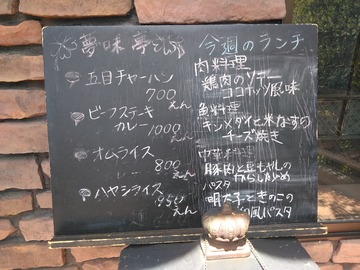 夢味亭
五目チャーハン
700
えん
ビーフステキ
カレー1000
えん
オムライス
800
えん
ハヤシライス
950
えん
今週のランチ
肉料理
鶏肉のソテー
ココナッツ風味
魚料理
キンメダイと米なすの
チーズ焼き
中華料理
豚肉と豆もやしの
炒め
パスタ
明太子ときのこの
風パスタ